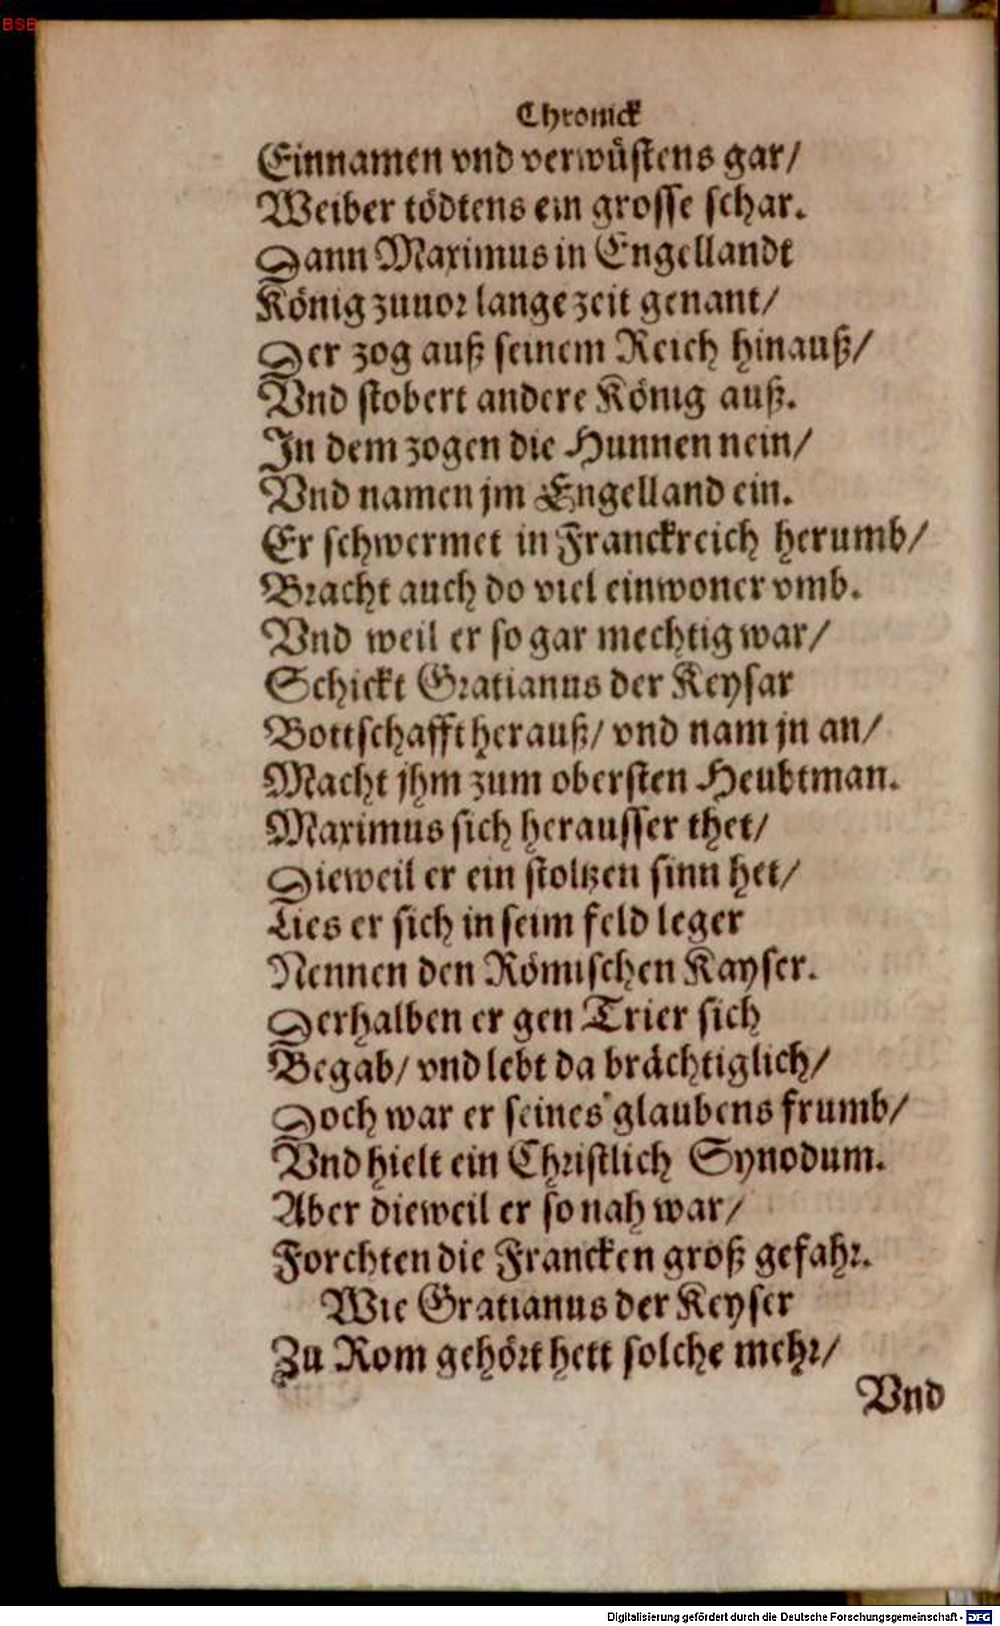 BSB
Chronick
Einnamen vnd verwüstens gar/
Weiber tödtens ein grosse schar.
Dann Maximus in Engellandt
König zuuor lange zeit genant/
Der zog auß seinem Reich hinauß/
Vnd stobert andere König auß.
In dem zogen die Hunnen nein/
Vnd namen jm Engelland ein.
Er schwermet in Franckreich herumb/
Bracht auch do viel einwoner vmb.
Vnd weil er so gar mechtig war/
Schickt Gratianus der Keysar
Bottschafft herauß/ vnd nam jn an/
Macht jhm zum obersten Heubtman.
Maximus sich herausser thet/
Dieweil er ein stoltzen sinn het/
Lies er sich in seim feld leger
Nennen den Römischen Kayser.
Derhalben er gen Trier sich
Begab/ vnd lebt da brächtiglich/
Doch war er seines glaubens frumb/
Vnd hielt ein Christlich Synodum.
Aber dieweil er so nah war/
Forchten die Francken groß gefahr.
Wie Gratianus der Keyser
Zu Rom gehört hett solche mehr/
Vnd
Digitalisierung gefördert durch die Deutsche Forschungsgemeinschaft - DFG